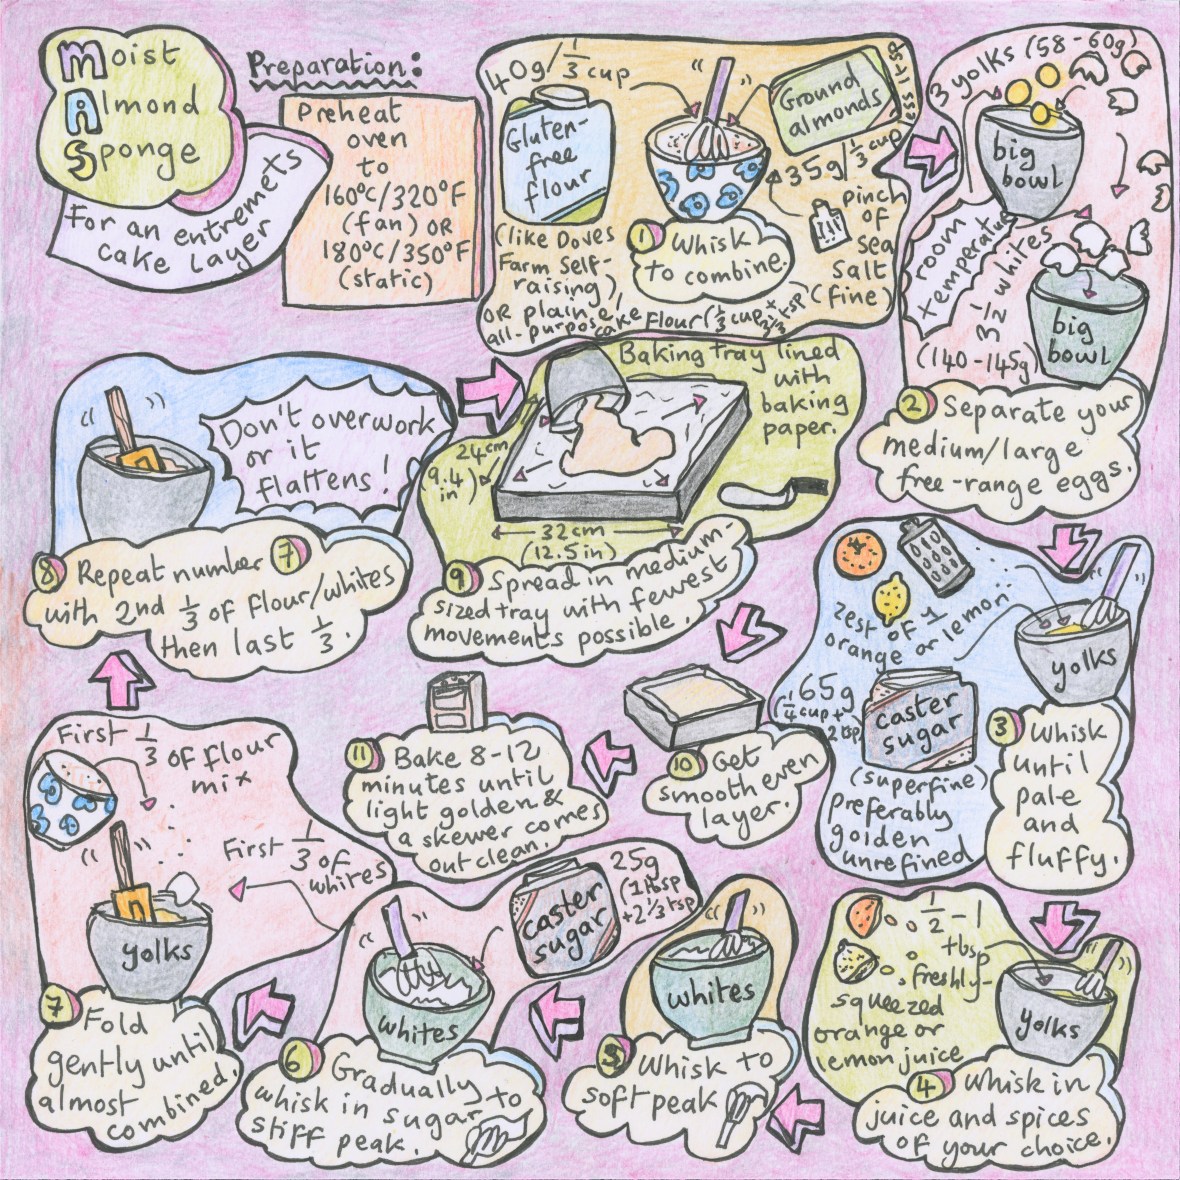 Moist
Almond
Sponge
For an entremets
cake layer
Preparation:
Preheat
oven
to
160°C/320°F
(fan) OR
180°C/350°F
(static)
40g/⅓ cup
Gluten-
free
flour
(like Doves
Farm Self-
raising)
OR plain/
all-purpose/
cake flour (⅓ cup + 2⅓ tsp)
Ground
almonds
35g/⅓ cup
less 1 tsp
pinch
of
sea
salt
(fine)
1 Whisk
to combine.
3 yolks (58-60g)
big
bowl
room
temperature
3½ whites
(140-145g)
big
bowl
2 Separate your
medium/large
free-range eggs.
zest of 1
orange or lemon
yolks
65g
(¼ cup +
2 tsp)
caster
sugar
(superfine)
preferably
golden
unrefined
3 Whisk
until
pale
and
fluffy.
½-1
tbsp
freshly-
squeezed
orange or
lemon juice
yolks
4 Whisk in
juice and spices
of your choice.
whites
5 Whisk to
soft peak
caster
sugar
25g
(1 tbsp
+2⅓ tsp)
whites
6 Gradually
whisk in sugar to
stiff peak.
First ⅓
of flour
mix
First ⅓ of
whites
yolks
7 Fold
gently until
almost
combined.
Don't overwork
or it
flattens!
8 Repeat number 7
with 2nd ⅓ of flour/whites
then last ⅓.
Baking tray lined
with
baking
paper.
24cm
(9.4
in)
32cm
(12.5 in)
9 Spread in medium-
sized tray with fewest
movements possible.
10 Get
smooth even
layer.
11 Bake 8-12
minutes until
light golden &
a skewer comes
out clean.